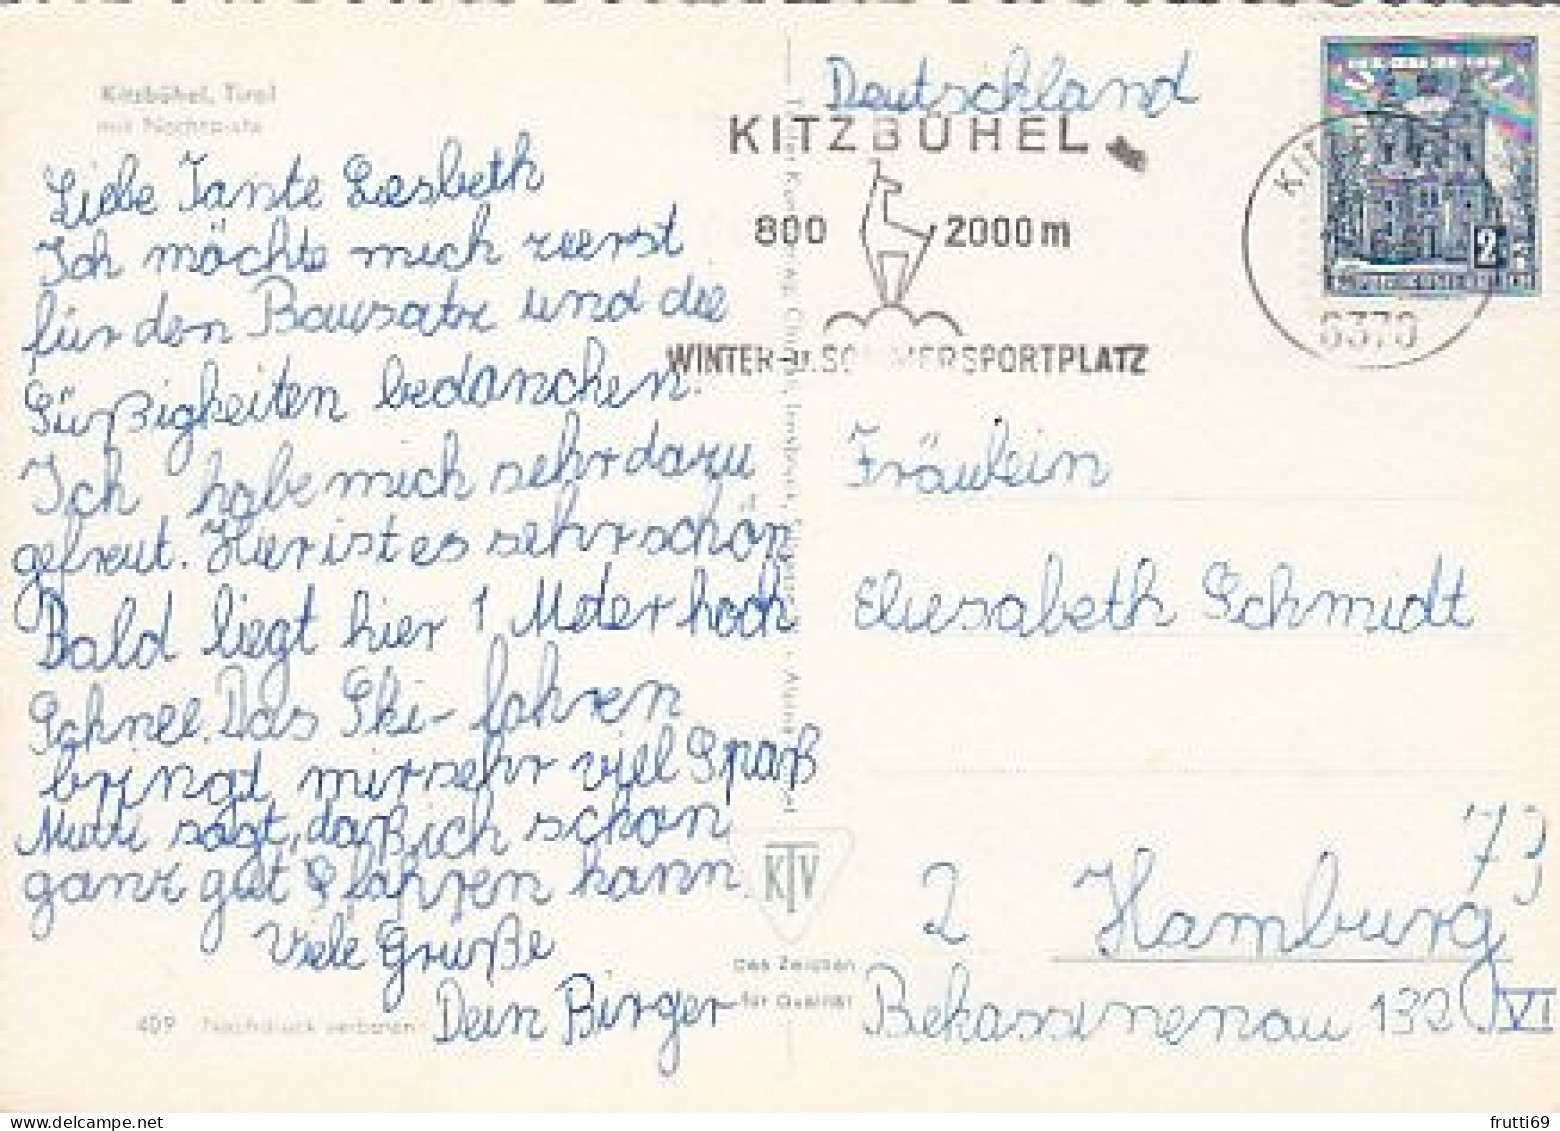 Kitzbühel, Tirol
mit Nachtpiste
Liebe Tante Liesbeth
Ich möchte mich zuerst
für den Bausatz und die
Süßigkeiten bedanchen.
Ich habe mich sehr dazu
gefreut. Hier ist es sehr schön
Bald liegt hier 1 Meter hoch
Schnee. Das Ski-fahren
bringt mir sehr viel Spaß
Mutti sagt, daß ich schon
ganz gut S fahren kann.
Viele Gruße
Dein Birger
409 Nachdruck verboten
KTV
Das Zeichen
für Qualität
Deutschland
KITZBÜHEL
800 2000 m
WINTER- u. SOMMERSPORTPLATZ
6370
2
Fräulein
Eliesabeth Schmidt
2 Hamburg 73
Bekassinenau 132 VI
frutti69